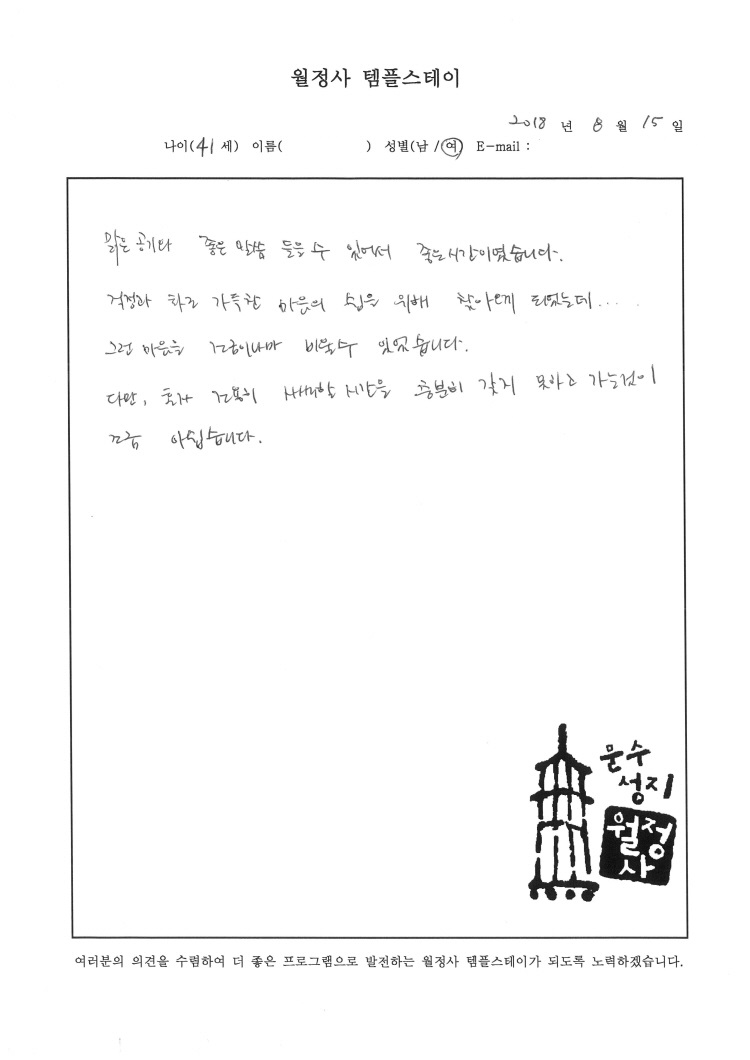 월정사 템플스테이
2018 년 8 월 15 일
나이(41 세) 이름( ) 성별(남 / 여) E-mail :
맑은 공기와 좋은 말씀 들을 수 있어서 좋은 시간이였습니다.
걱정과 화로 가득찬 마음의 쉼을 위해 찾아오게 되었는데.....
그런 마음을 조금이나마 비울 수 있었습니다.
다만, 혼자 조용히 사색할 시간을 충분히 갖지 못하고 가는것이
조금 아쉽습니다.
문수
성지
월정
사
여러분의 의견을 수렴하여 더 좋은 프로그램으로 발전하는 월정사 템플스테이가 되도록 노력하겠습니다.